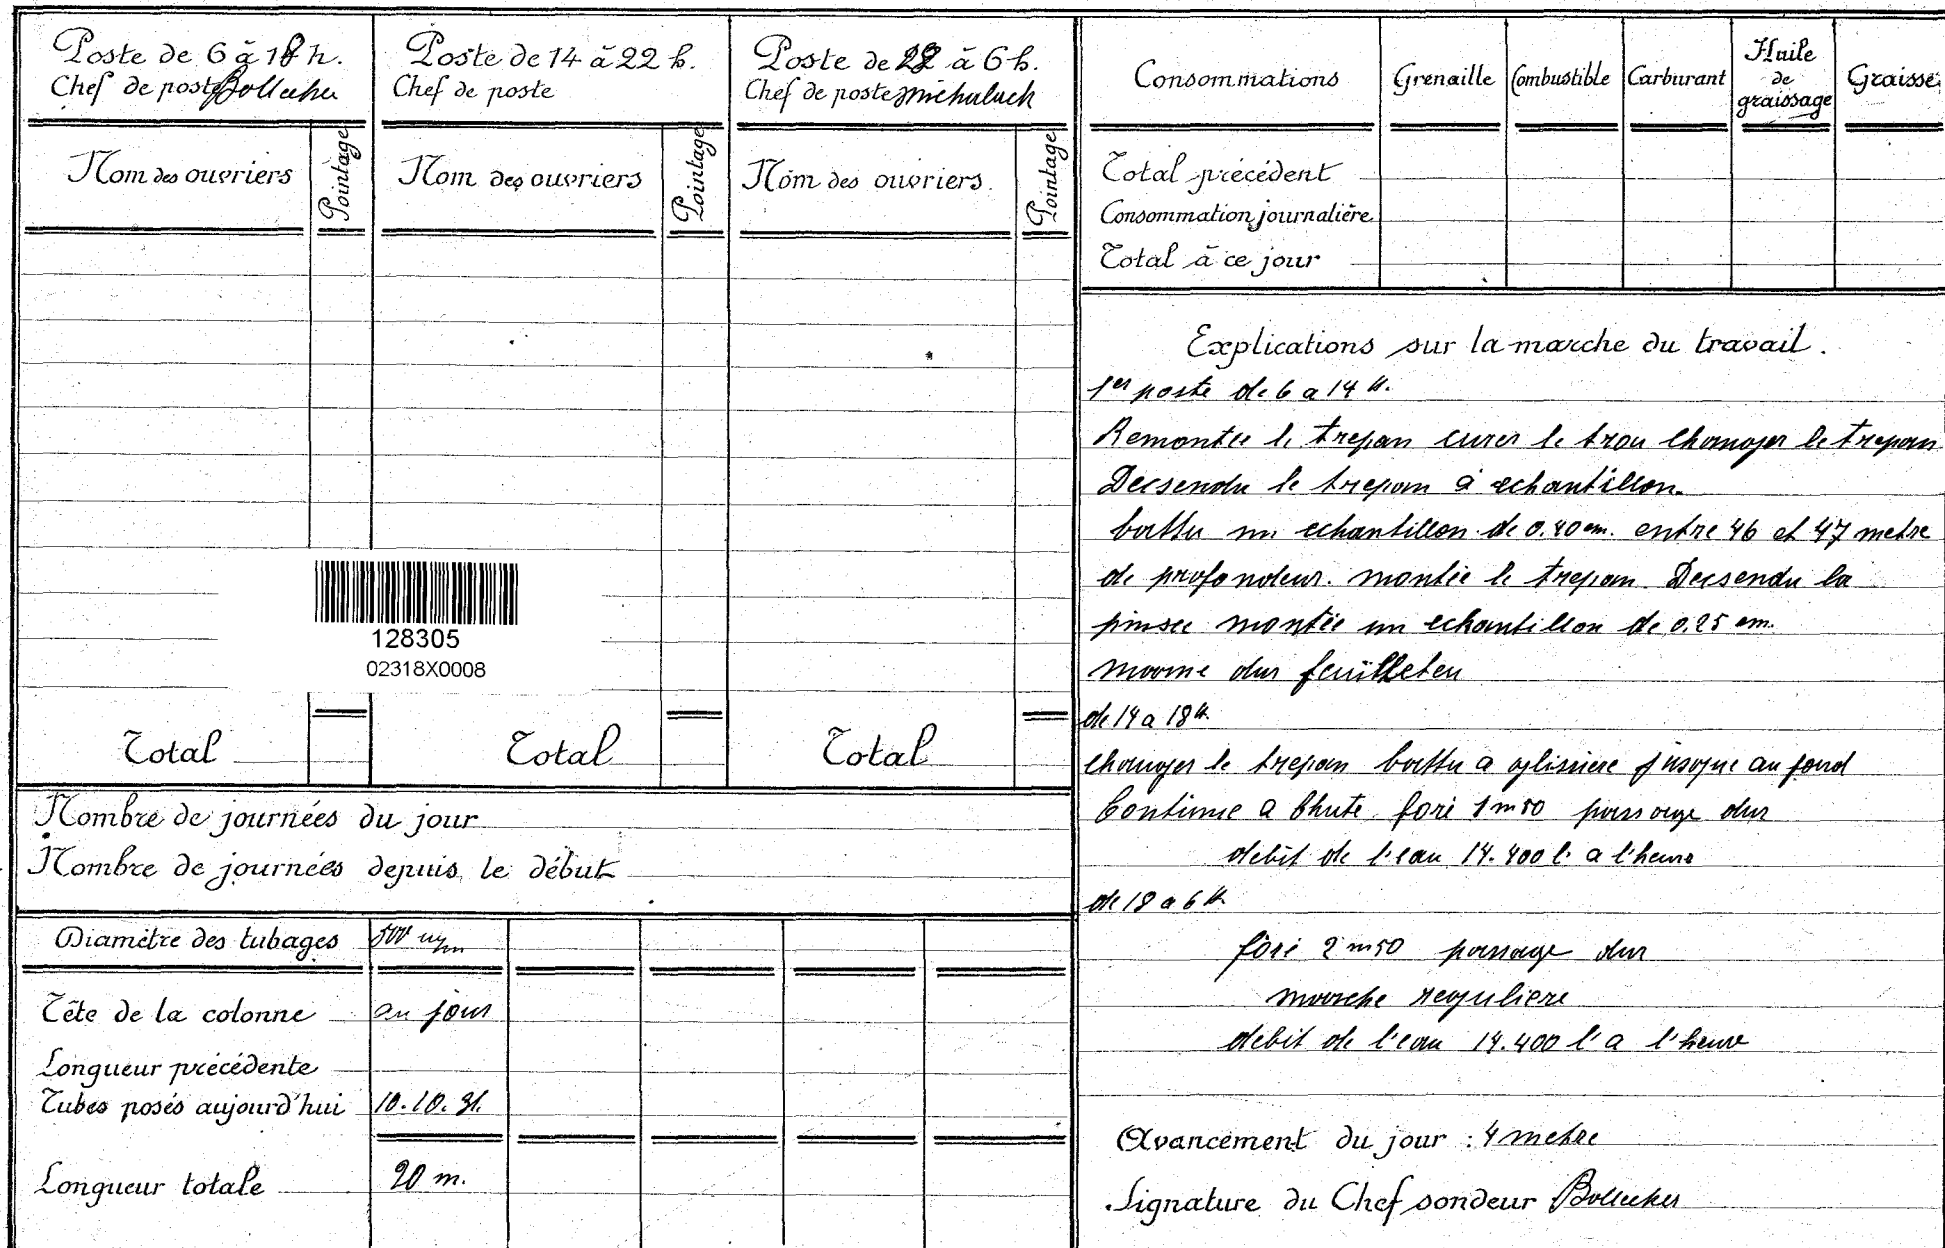 Poste de 6 à 18 h.
Chef de poste Bollecher
Nom des ouvriers
Pointage
Total
Poste de 14 à 22 h.
Chef de poste
Nom des ouvriers
Pointage
Total
Poste de à 6 h.
Chef de poste Michaluck
Nom des ouvriers.
Pointage
Total
128305
02318X0008
Nombre de journées du jour
Nombre de journées depuis le début
Diamètre des tubages 500 m/m
Tête de la colonne au jour
Longueur précédente
Tubes posés aujourd'hui 10.10.31.
Longueur totale 20 m.
Consommations Grenaille Combustible Carburant Huile de graissage Graisse
Total précédent
Consommation journalière
Total à ce jour
Explications sur la marche du travail.
1er poste de 6 a 14 h.
Remontée le trepan curer le trou changer le trepan
Decsendu le trepan à echantillon.
battu un echantillon de 0.40 cm. entre 46 et 47 metre
de profondeur. montée le trepan Decsendu la
pinsee montée un echantillon de 0.25 cm.
marne dur feuilleteu
de 14 a 18 h.
changer le trepan battu a glisiere jusque au fond
Continue a Chute foré 1 m 50 passage dur
debit de l'eau 14.400 l. a l'heure
de 18 a 6 h.
foré 2 m 50 passage dur
marche reguliere
debit de l'eau 14.400 l a l'heure
Avancement du jour : 4 metre
Signature du Chef sondeur Bollecher